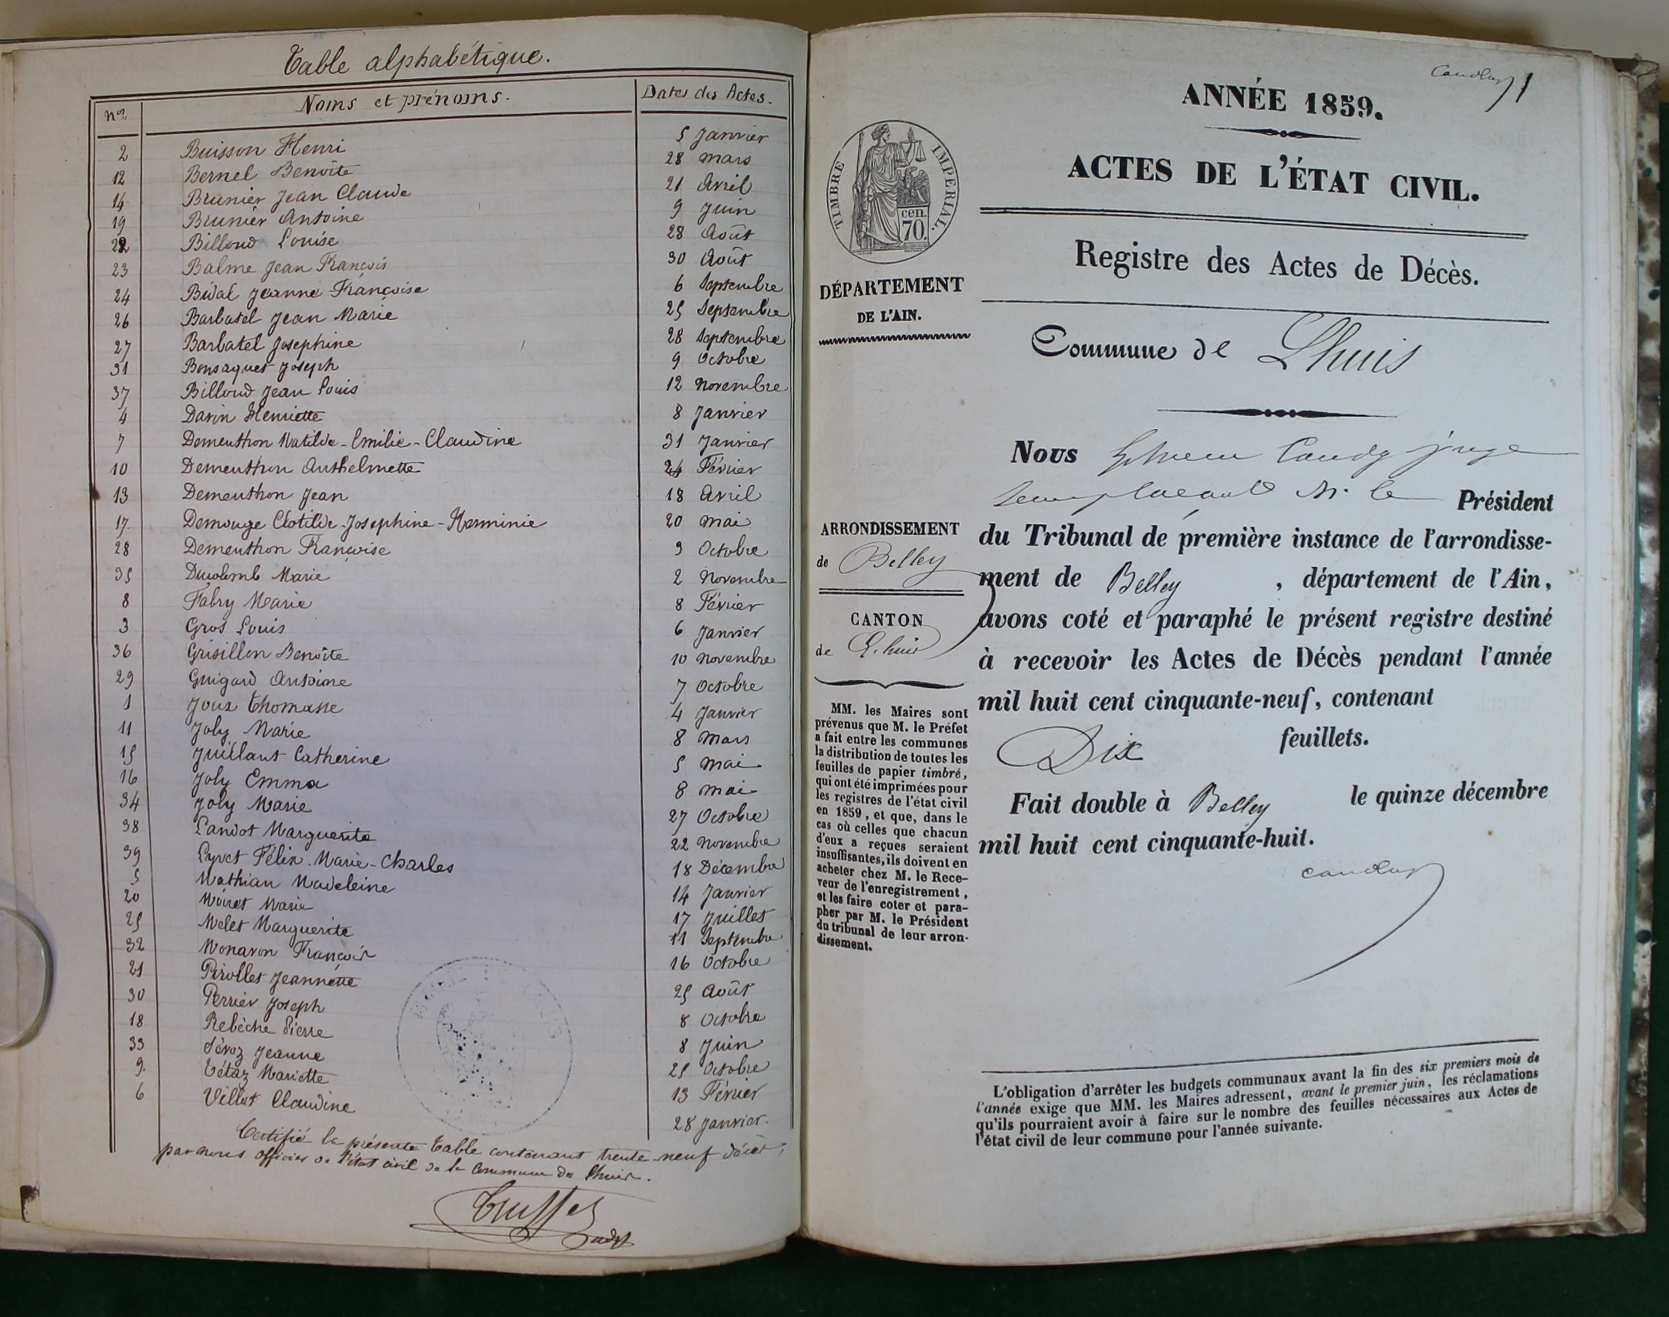 Table alphabétique.
Nos Noms et prénoms. Dates des Actes.
2 Buisson Henri 5 Janvier
12 Bernel Benoîte 28 mars
14 Brunier Jean Claude 21 Avril
19 Brunier Antoine 9 Juin
22 Billoud Louise 28 Août
23 Balme Jean François 30 Août
24 Bidal Jeanne Françoise 6 Septembre
26 Barbatel Jean Marie 25 Septembre
27 Barbatel Josephine 28 Septembre
31 Bonsaquet Joseph 9 Octobre
37 Billoud Jean Louis 12 novembre
4 Darin Henriette 8 Janvier
7 Dementhon Matilde-Emilie-Claudine 31 Janvier
10 Dementhon Anthelmette 24 Février
13 Dementhon Jean 18 Avril
17 Demouge Clotilde-Josephine-Herminie 20 mai
28 Dementhon Françoise 3 Octobre
35 Ducolomb Marie 2 novembre
8 Fabry Marie 8 Février
3 Gros Louis 6 Janvier
36 Grisillon Benoîte 10 novembre
29 Guigard Antoine 7 Octobre
1 Joux Thomasse 4 Janvier
11 Joly Marie 8 mars
15 Juillant Catherine 5 mai
16 Joly Emma 8 mai
34 Joly Marie 27 Octobre
38 Landot Marguerite 22 novembre
39 Lyvet Félix-Marie-Charles 18 Décembre
5 Mathian Madeleine 14 Janvier
20 Moiret Marie 17 Juillet
25 Melet Marguerite 11 Septembre
32 Monavon François 16 Octobre
21 Pirollet Jeannette 25 Août
30 Perrier Joseph 8 Octobre
18 Rebèche Pierre 8 Juin
33 Sévoz Jeanne 25 Octobre
9 Tétaz Mariette 13 Février
6 Villet Claudine 28 Janvier.
Certifié la présente Table contenant trente-neuf décès;
par nous officier de l'état civil de la Commune de Lhuis.
ANNÉE 1859.
1
ACTES DE L'ÉTAT CIVIL.
TIMBRE IMPÉRIAL.
cen. 70.
Registre des Actes de Décès.
DÉPARTEMENT
DE L'AIN.
Commune de Lhuis
ARRONDISSEMENT
de Belley
CANTON
de Lhuis
MM. les Maires sont
prévenus que M. le Préfet
a fait entre les communes
la distribution de toutes les
feuilles de papier timbré,
qui ont été imprimées pour
les registres de l'état civil
en 1859, et que, dans le
cas où celles que chacun
d'eux a reçues seraient
insuffisantes, ils doivent en
acheter chez M. le Rece-
veur de l'enregistrement,
et les faire coter et para-
pher par M. le Président
du tribunal de leur arron-
dissement.
Nous juge
remplaçant M. le Président
du Tribunal de première instance de l'arrondisse-
ment de Belley, département de l'Ain,
avons coté et paraphé le présent registre destiné
à recevoir les Actes de Décès pendant l'année
mil huit cent cinquante-neuf, contenant
Dix feuillets.
Fait double à Belley le quinze décembre
mil huit cent cinquante-huit.
L'obligation d'arrêter les budgets communaux avant la fin des six premiers mois de
l'année exige que MM. les Maires adressent, avant le premier juin, les réclamations
qu'ils pourraient avoir à faire sur le nombre des feuilles nécessaires aux Actes de
l'état civil de leur commune pour l'année suivante.